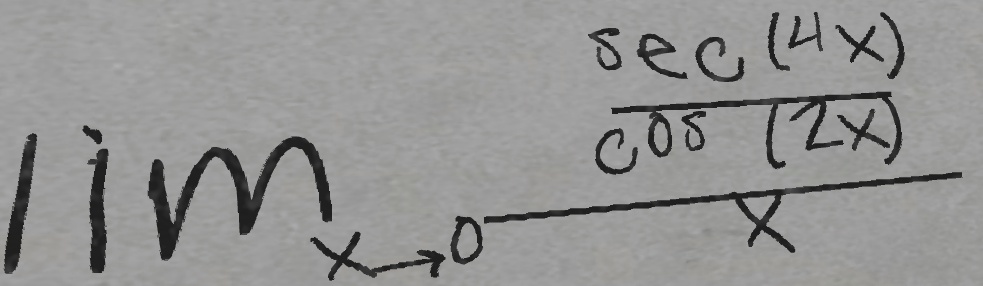 lim x→0 sec(4x)/cos(2x)/x